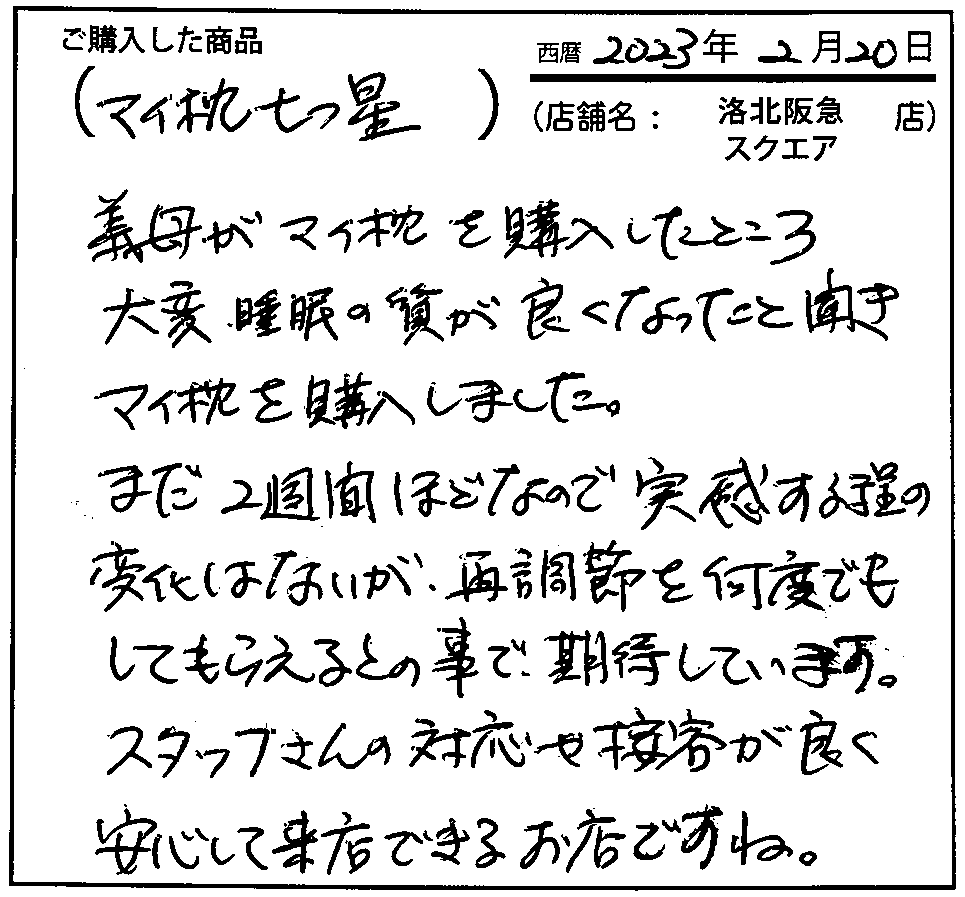 ご購入した商品
西暦 2023年 2月20日
(マイ枕七つ星 )
(店舗名: 洛北阪急 店)
スクエア
義母がマイ枕を購入したところ
大変睡眠の質が良くなったこと聞き
マイ枕を購入しました。
まだ2週間ほどなので実感する程の
変化はないが、再調節を何度でも
してもらえるとの事で、期待しています。
スタッフさんの対応や接客が良く
安心して来店できるお店ですね。